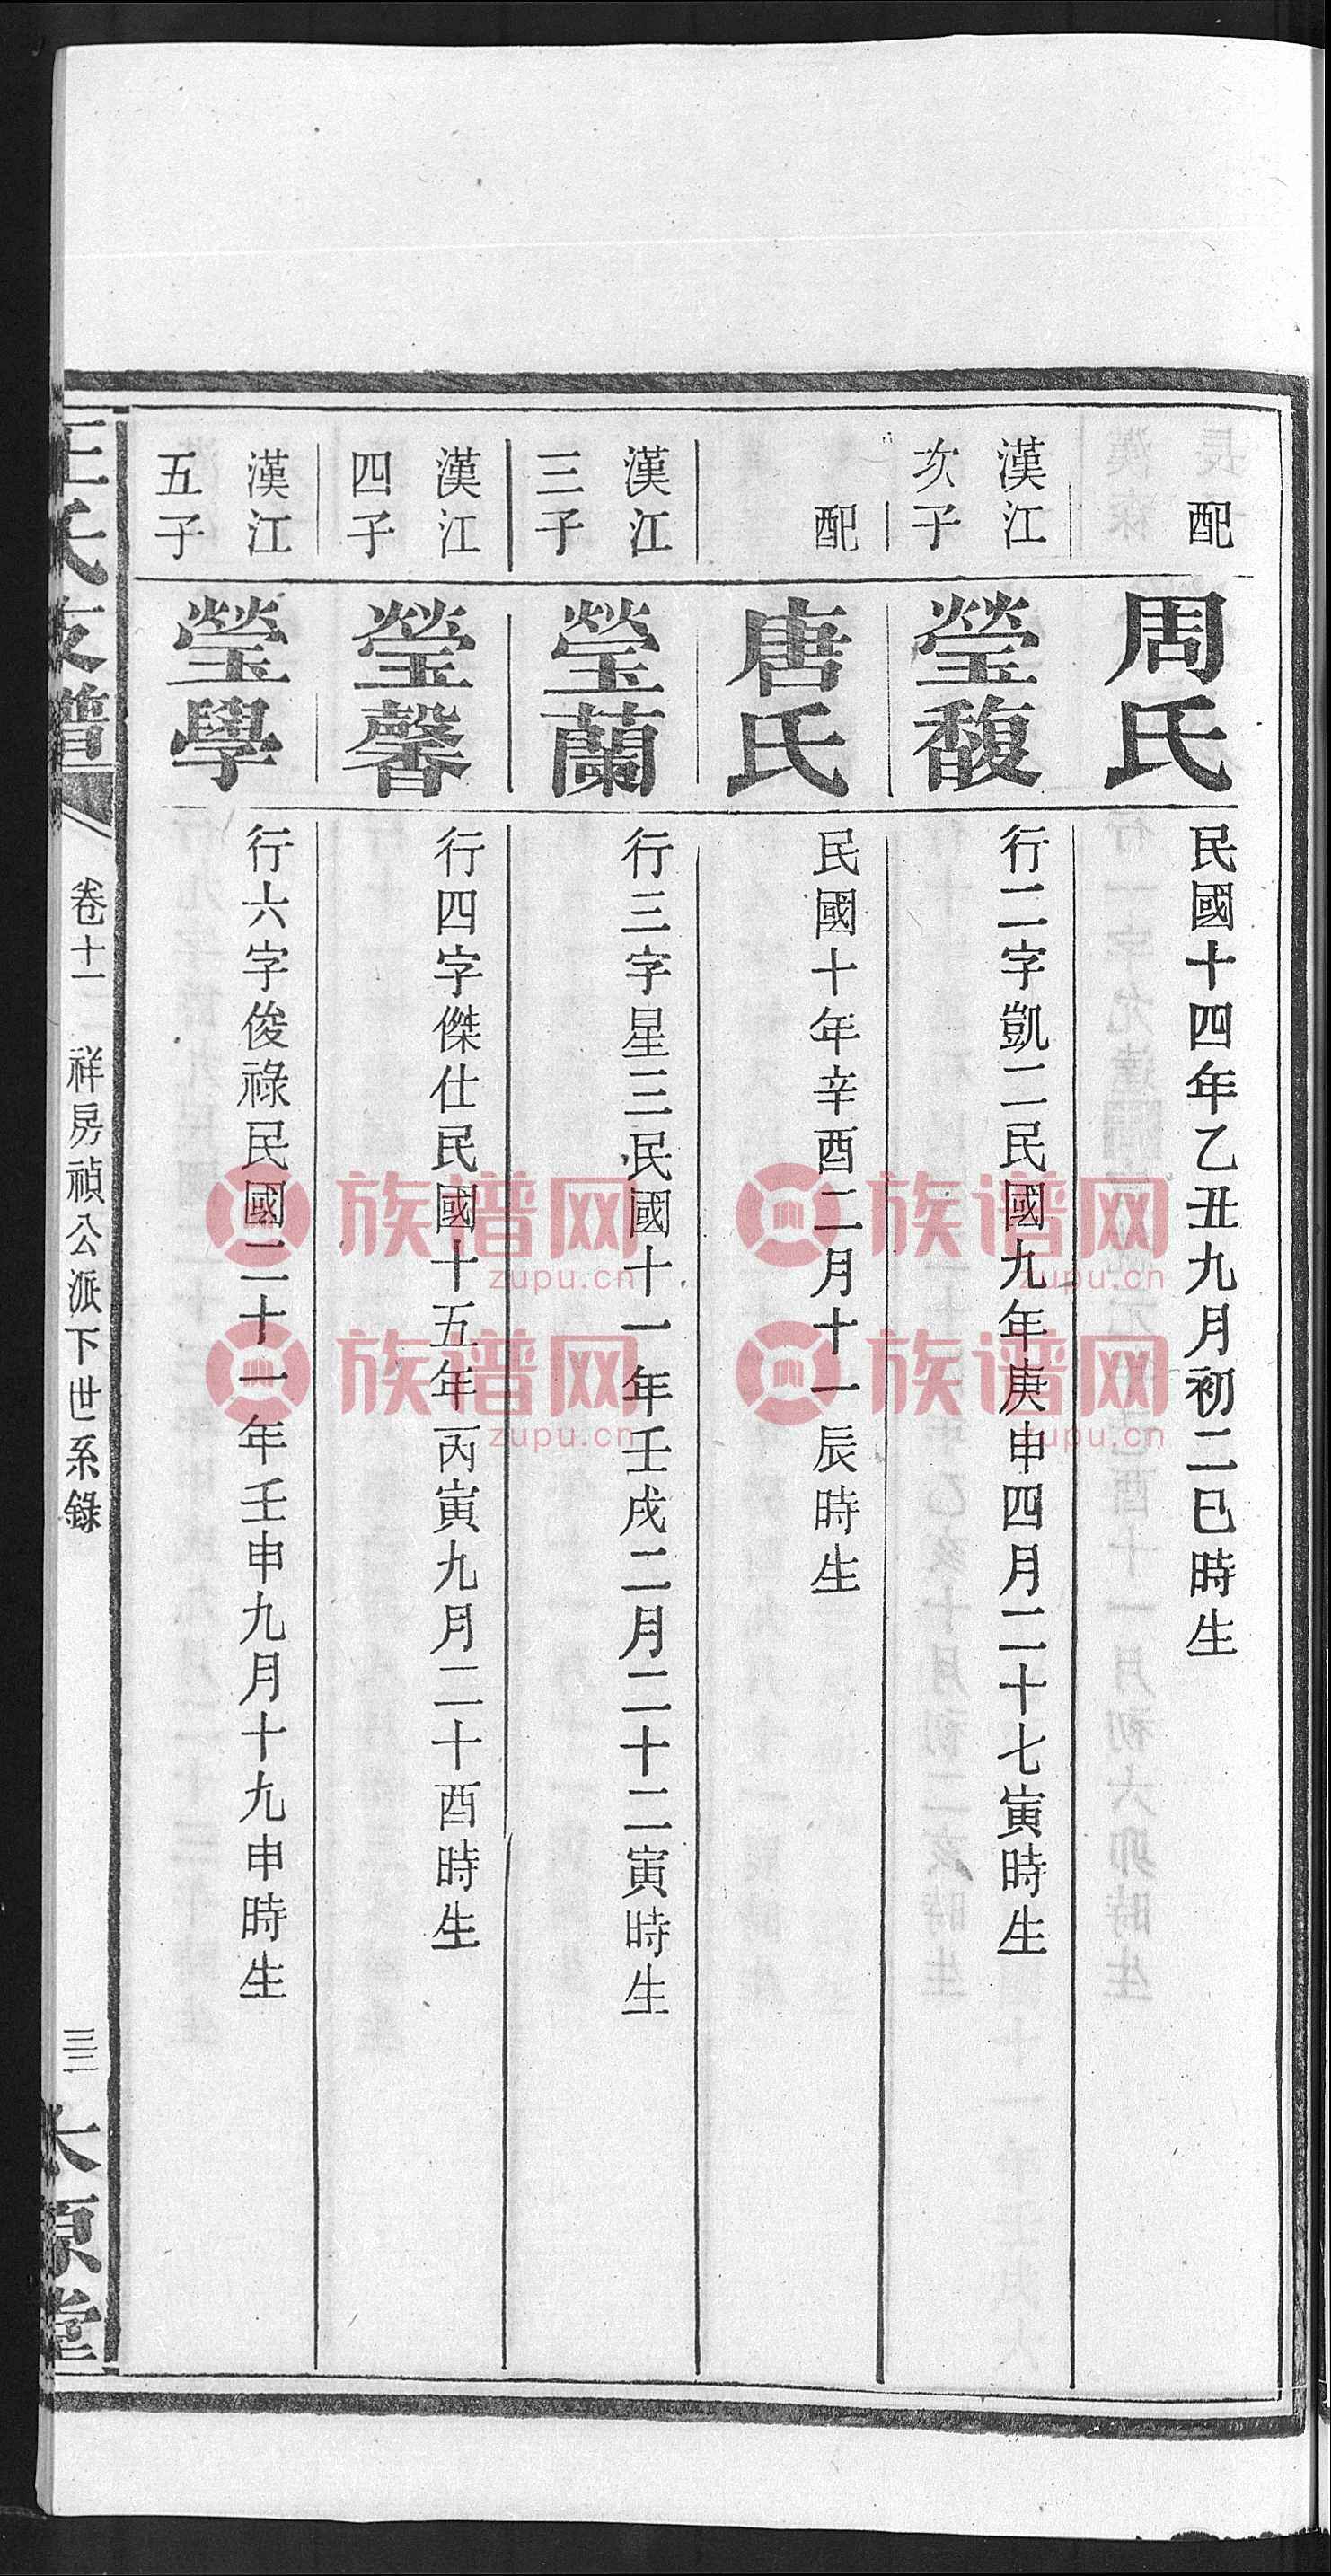 配
周氏
民國十四年乙丑九月初二巳時生
漢江
次子
瑩馥
行二字凱二民國九年庚申四月二十七寅時生
配
唐氏
民國十年辛酉二月十一辰時生
漢江
三子
瑩蘭
行三字星三民國十一年壬戌二月二十二寅時生
漢江
四子
瑩馨
行四字傑仕民國十五年丙寅九月二十酉時生
漢江
五子
瑩學
行六字俊祿民國二十一年壬申九月十九申時生
王氏支譜
卷十二
祥房禎公派下世系錄
三三
太原堂
族谱网
zupu.cn
族谱网
zupu.cn
族谱网
zupu.cn
族谱网
zupu.cn